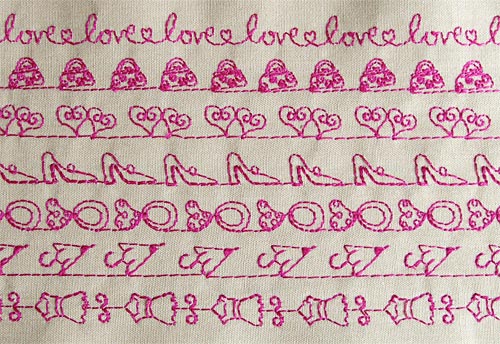 love love love love love love